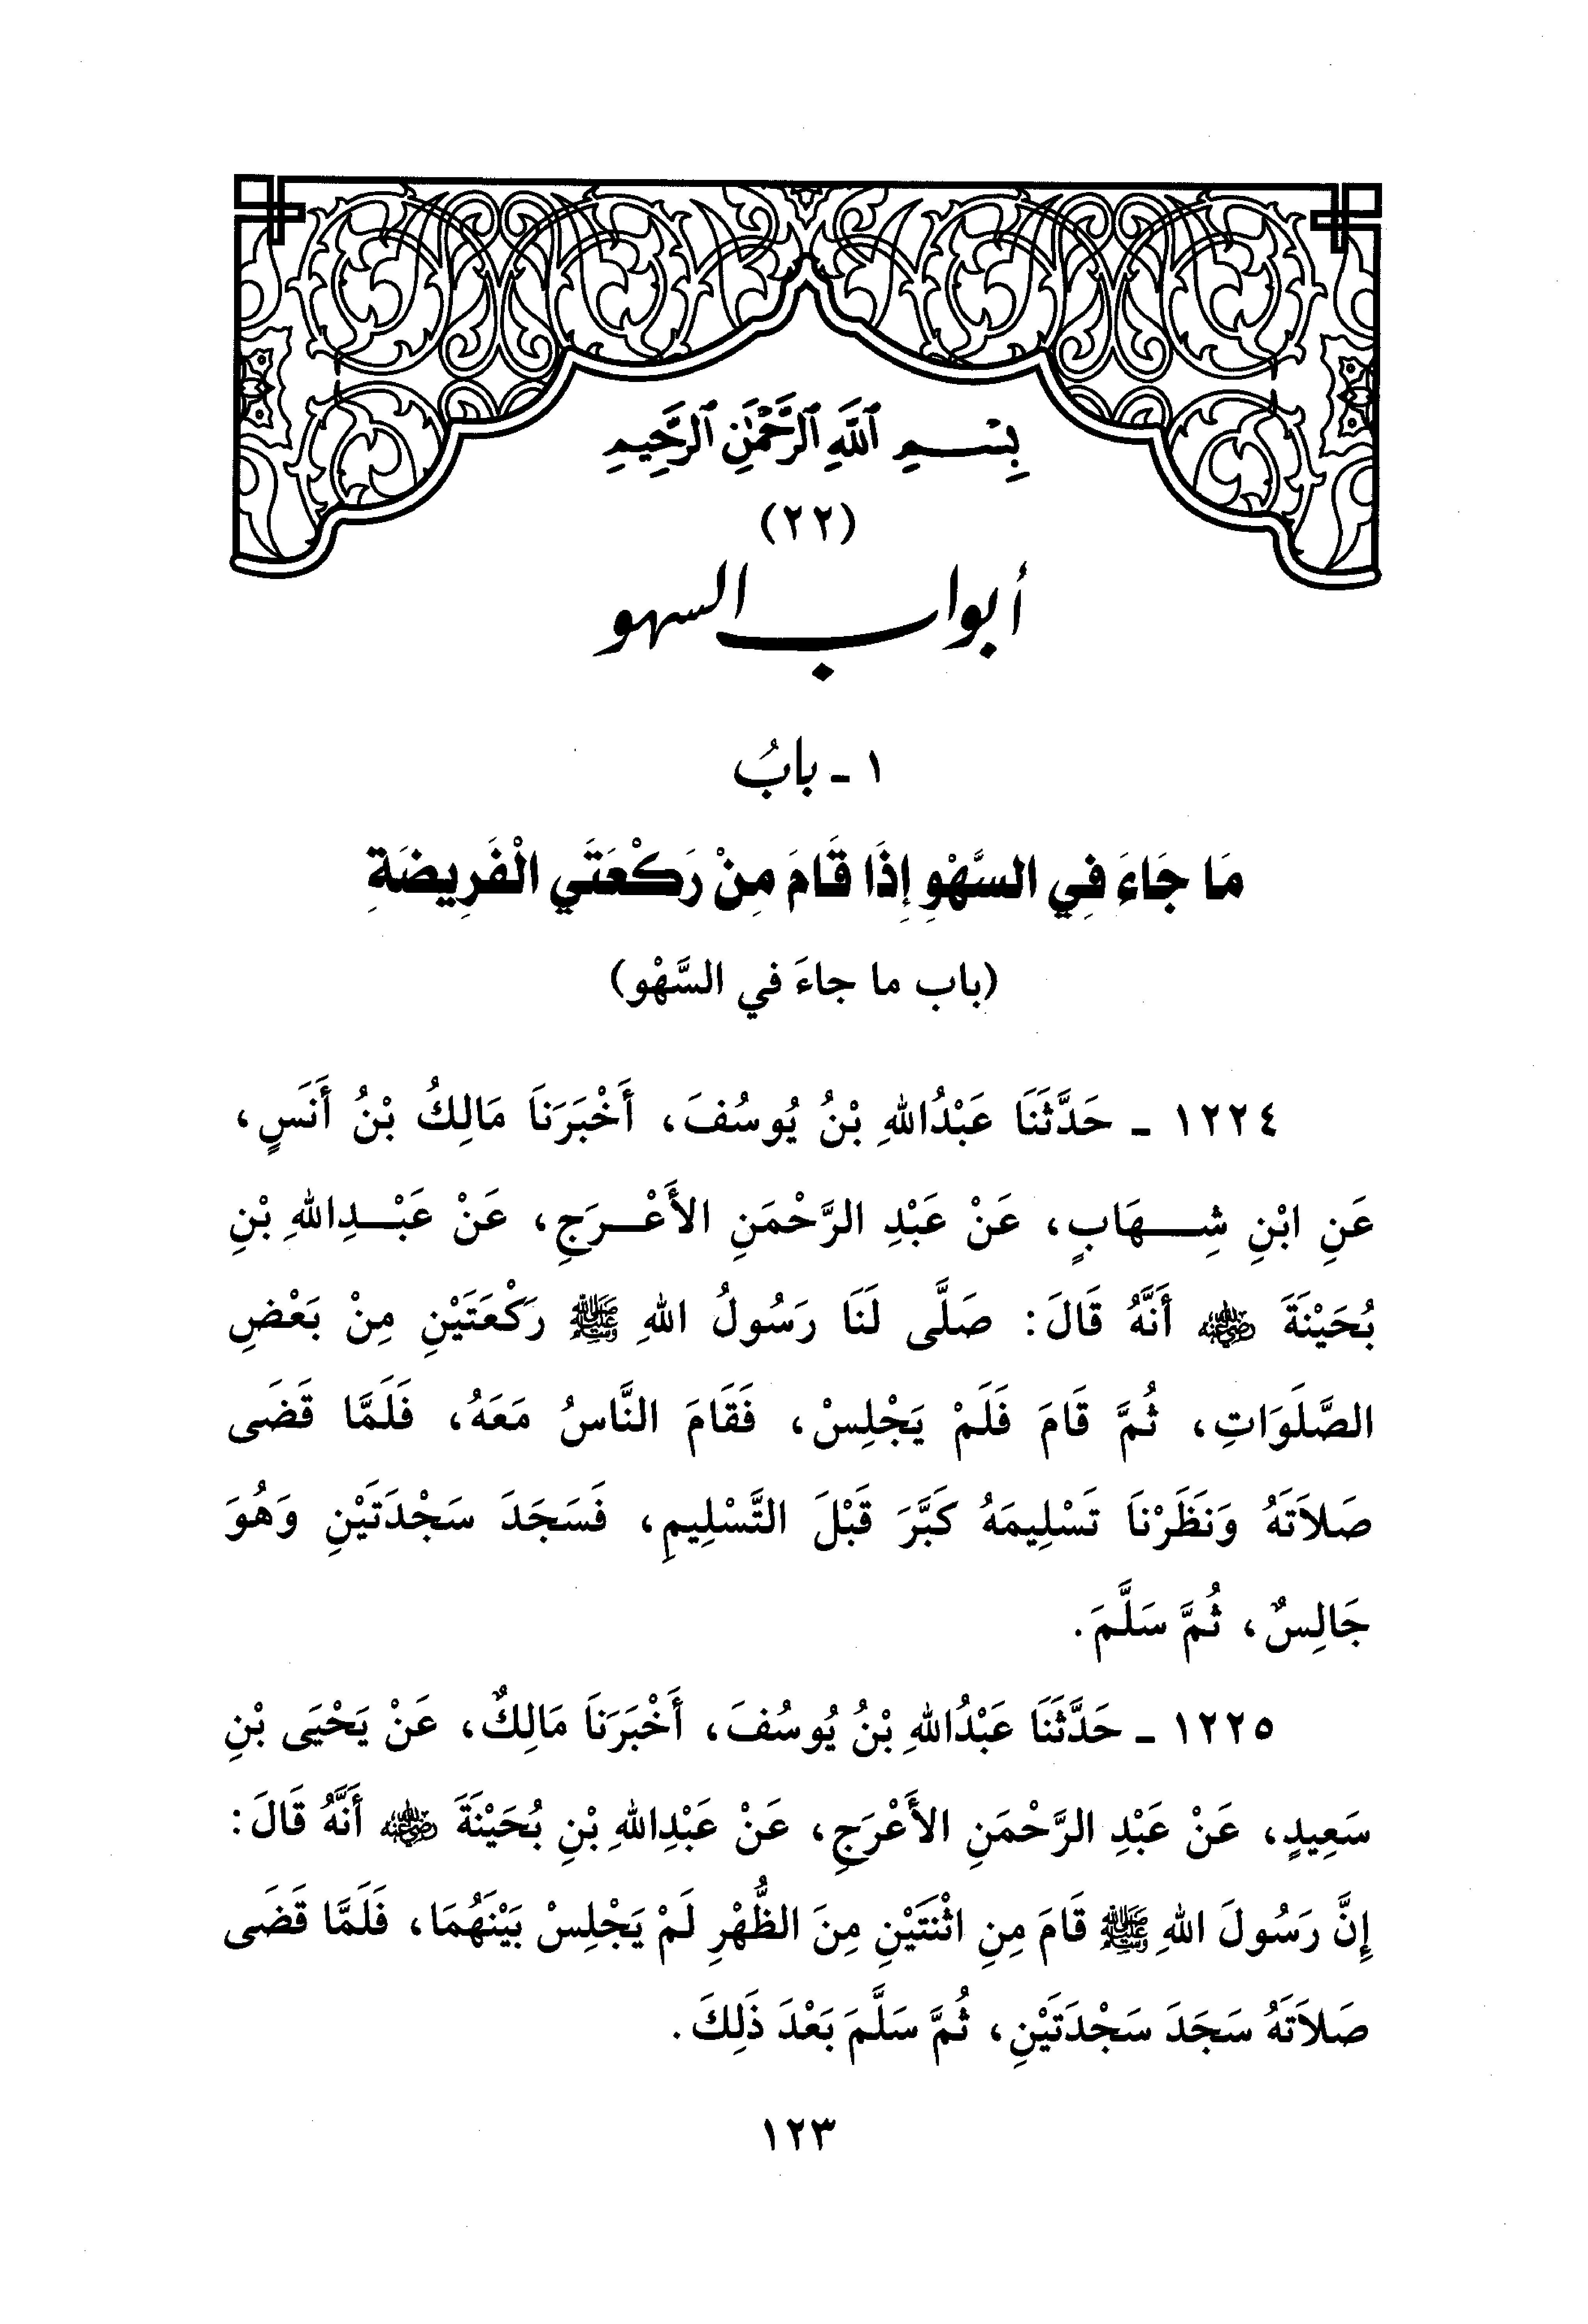 بِسْمِ ٱللَّهِ ٱلرَّحْمَٰنِ ٱلرَّحِيمِ
(٢٢)
أبواب السهو
١ ـ بابُ
مَا جَاءَ فِي السَّهْوِ إِذَا قَامَ مِنْ رَكْعَتَي الْفَرِيضَةِ
(باب ما جاءَ في السَّهْو)
١٢٢٤ ـ حَدَّثَنَا عَبْدُاللهِ بْنُ يُوسُفَ، أَخْبَرَنَا مَالِكُ بْنُ أَنَسٍ،
عَنِ ابْنِ شِهَابٍ، عَنْ عَبْدِ الرَّحْمَنِ الأَعْرَجِ، عَنْ عَبْدِاللهِ بْنِ
بُحَيْنَةَ رضي الله عنه أَنَّهُ قَالَ: صَلَّى لَنَا رَسُولُ اللهِ ﷺ رَكْعَتَيْنِ مِنْ بَعْضِ
الصَّلَوَاتِ، ثُمَّ قَامَ فَلَمْ يَجْلِسْ، فَقَامَ النَّاسُ مَعَهُ، فَلَمَّا قَضَى
صَلاَتَهُ وَنَظَرْنَا تَسْلِيمَهُ كَبَّرَ قَبْلَ التَّسْلِيمِ، فَسَجَدَ سَجْدَتَيْنِ وَهُوَ
جَالِسٌ، ثُمَّ سَلَّمَ.
١٢٢٥ ـ حَدَّثَنَا عَبْدُاللهِ بْنُ يُوسُفَ، أَخْبَرَنَا مَالِكٌ، عَنْ يَحْيَى بْنِ
سَعِيدٍ، عَنْ عَبْدِ الرَّحْمَنِ الأَعْرَجِ، عَنْ عَبْدِاللهِ بْنِ بُحَيْنَةَ رضي الله عنه أَنَّهُ قَالَ:
إِنَّ رَسُولَ اللهِ ﷺ قَامَ مِنِ اثْنَتَيْنِ مِنَ الظُّهْرِ لَمْ يَجْلِسْ بَيْنَهُمَا، فَلَمَّا قَضَى
صَلاَتَهُ سَجَدَ سَجْدَتَيْنِ، ثُمَّ سَلَّمَ بَعْدَ ذَلِكَ.
١٢٣